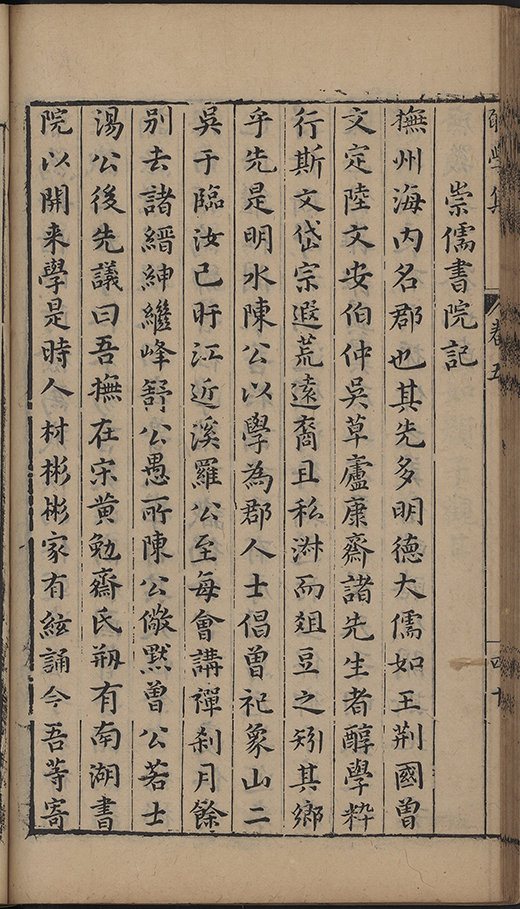 學集 卷五 四十
崇儒書院記
撫州海内名郡也其先多明德大儒如王荆國曾
文定陸文安伯仲吳草廬康齋諸先生者醇學粹
行斯文岱宗遐荒遠裔且私淑而俎豆之矧其鄉
乎先是明水陳公以學為郡人士倡曾祀象山二
吳于臨汝已盱江近溪羅公至每會講禪刹月餘
别去諸縉紳繼峰舒公愚所陳公儆默曾公若士
湯公後先議曰吾撫在宋黄勉齋氏剏有南湖書
院以開来學是時人材彬彬家有絃誦今吾䓁寄